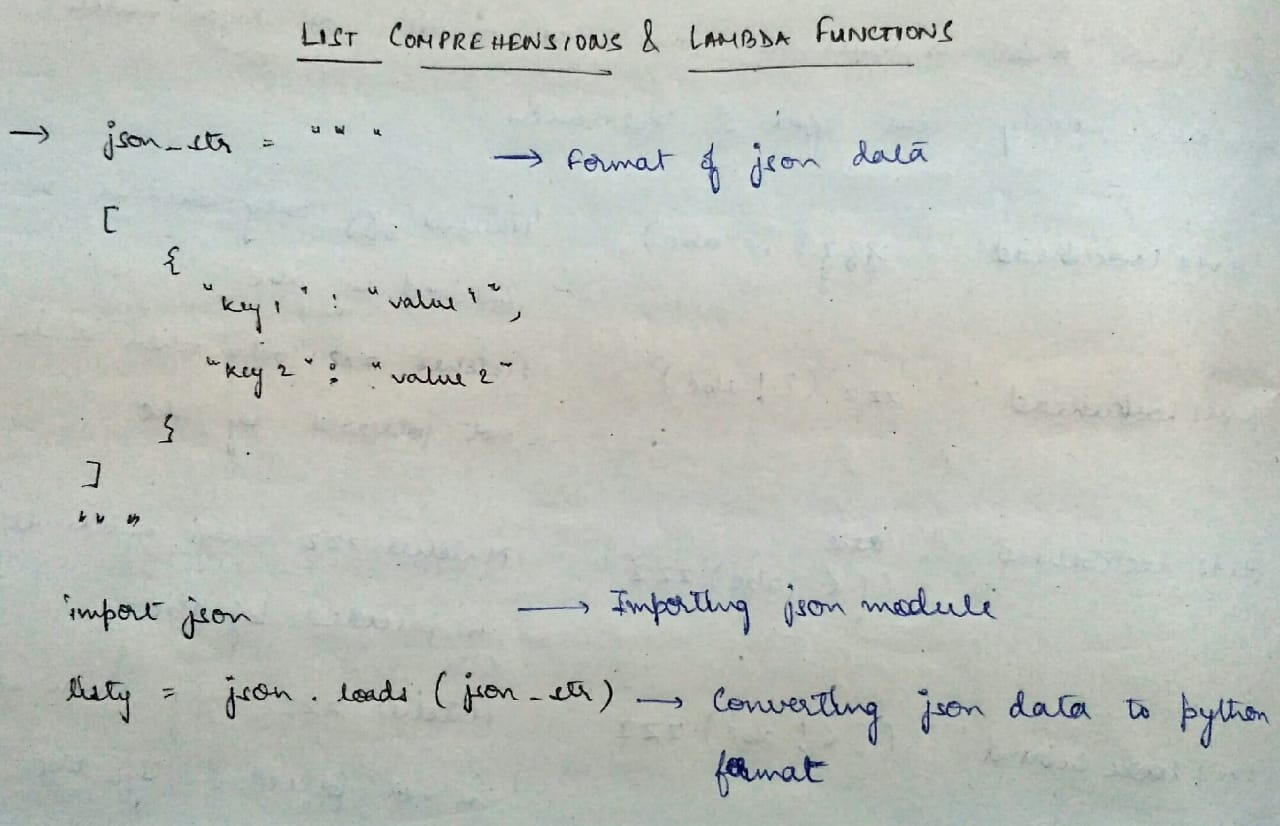 LIST COMPREHENSIONS & LAMBDA FUNCTIONS
→ json_str = " " " → Format of json data
[
{
"key1" : "value1",
"key2" : "value2"
}
]
" " "
import json → Importing json module
listy = json.loads(json_str) → Converting json data to python
format